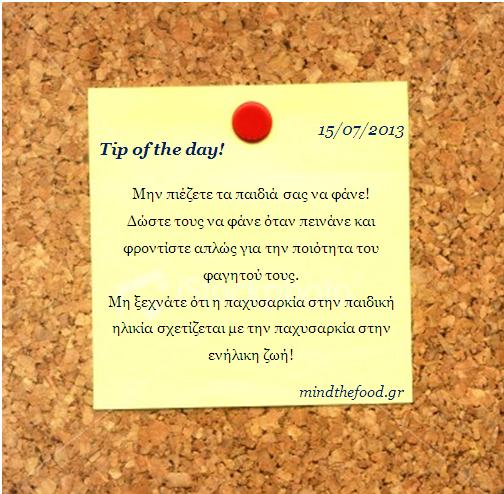 15/07/2013
Tip of the day!
Μην πιέζετε τα παιδιά σας να φάνε!
Δώστε τους να φάνε όταν πεινάνε και
φροντίστε απλώς για την ποιότητα του
φαγητού τους.
Μη ξεχνάτε ότι η παχυσαρκία στην παιδική
ηλικία σχετίζεται με την παχυσαρκία στην
ενήλικη ζωή!
mindthefood.gr